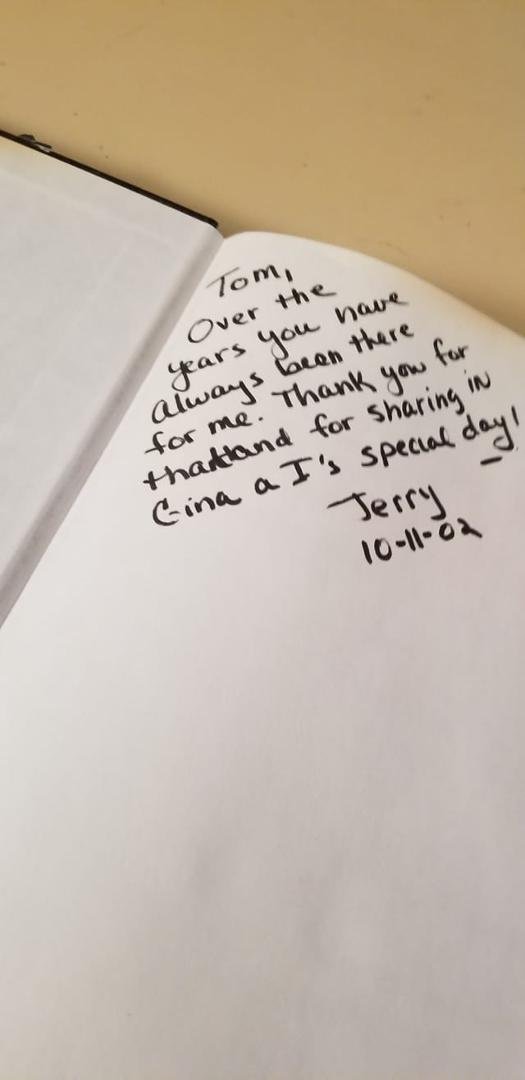 Tom,
Over the
years you have
always been there
for me. Thank you for
that and for sharing in
Gina a I's special day!
Jerry
10-11-02